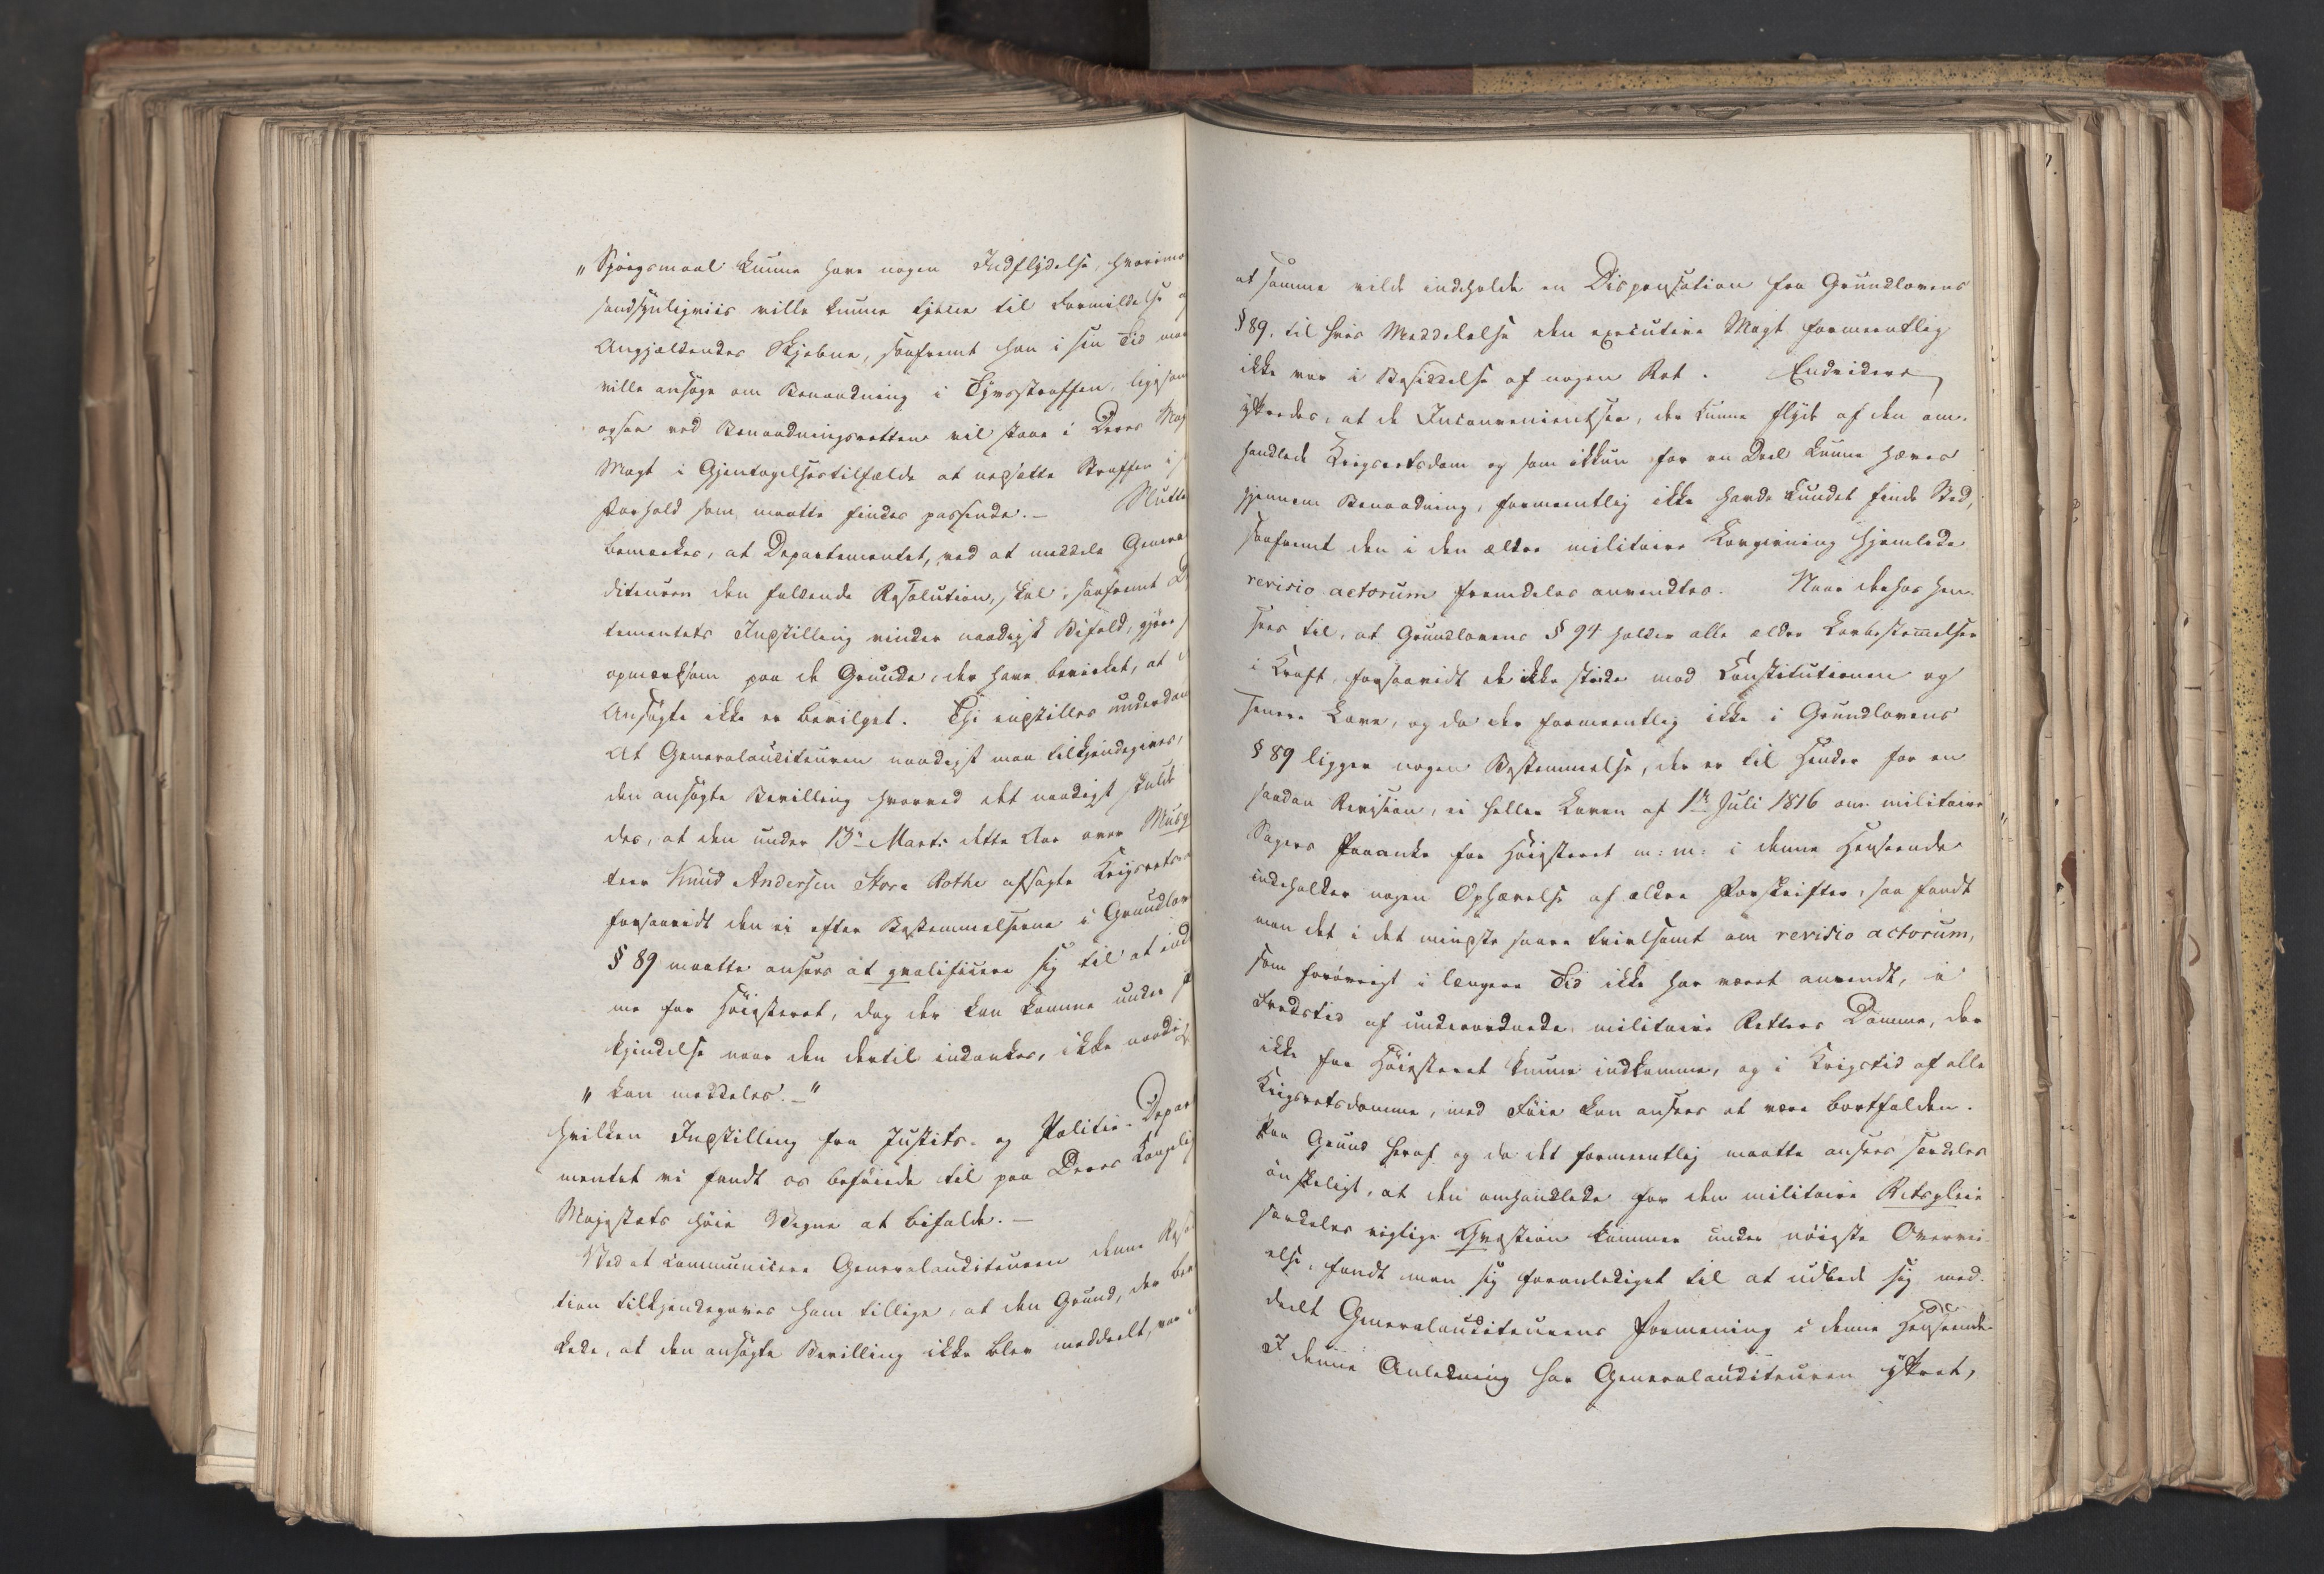 „Spörgsmaal kunne have nogen Indflydelse, hvorimo
sandsynligviis ville kunne tjene til Formildelse
Angjældendes Skjebne, saafremt han i sin Tid maa
ville ansøge om Benaadning i Tyvsstraffen, ligesom
ogsaa ved Benaadningsretten vil staae i Deres Maj
Magt i Gjentagelsestilfælde at nedsætte Straffen i
Forhold som maatte findes passende.— Slutte
bemærkes, at Departementet, ved at meddele Genera
diteuren den faldende Resolution, skal, saafremt D
tementets Indstilling vinder naadigst Bifald, gjøre
opmærksom paa de Grunde, der have bevirket, at
Ansøgte ikke er bevilget. Thi indstilles underdan
At Generalauditeuren naadigst maa tilkjendegives,
den ansøgte Bevilling hvorved det naadigst skulde
des, at den under 13de Marts dette Aar over Musq
teer Knud Andersen Store Rothe afsagte Krigsrets
forsaavidt den ei efter Bestemmelserne i Grundlov
§ 89 maatte ansees at qvalificere sig til at ind
me for Höiesteret, dog der kan komme under
kjendelse naar den dertil indankes, ikke naadigst
„kan meddeles.—"
Hvilken Indstilling fra Justits- og Politie-Depar
mentet vi fandt os beföiede til paa Deres Kongelig
Majestæts höie Vegne at bifalde.—
Ved at communicere Generalauditeuren denne Reso
tion tilkjendegaves ham tillige, at den Grund, der bev
kede, at den ansøgte Bevilling ikke blev meddeelt, var
at samme vilde indeholde en Dispensation fra Grundlovens
§ 89, til hvis Meddelelse den executive Magt formeentlig
ikke var i Besiddelse af nogen Ret. Endvidere
yttredes, at de Inconvenientser, der kunne flyde af den om-
handlede Krigsretsdom og som ikkun for en Deel kunne hæves
gjennem Benaadning, formeentlig ikke havde kundet finde Sted,
saafremt den i den ældre militaire Lovgivning hjemlede
revisio actorum fremdeles anvendtes. Naar derhos hen-
sees til, at Grundlovens § 94 holder alle ældre Lovbestemmelser
i Kraft, forsaavidt de ikke stride mod Constitutionen og
senere Love, og da der formeentlig ikke i Grundlovens
§ 89 ligger nogen Bestemmelse, der er til Hinder for en
saadan Revision, ei heller Loven af 1ste Juli 1816 om militaire
Sagers Paaanke for Höiesteret m: m: i denne Henseende
indeholder nogen Ophævelse af ældre Forskrifter, saa fandt
man det i det mindste saare tvivlsomt om revisio actorum,
som forövrigt i længere Tid ikke har været anvendt, i
Fredstid af underordnede militaire Retters Domme, der
ikke for Höiesteret kunne indkomme, og i Krigstid af alle
Krigsretsdomme, med Föie kan ansees at være bortfalden.
Paa Grund heraf og da det formeentlig maatte ansees særdeles
önskeligt, at den omhandlede for den militaire Retspleie
særdeles vigtige Qvæstion kommer under nöieste Overvei-
else, fandt man sig foranlediget til at udbede sig med-
deelt Generalauditeurens Formening i denne Henseende
I denne Anledning har Generalauditeuren yttret,